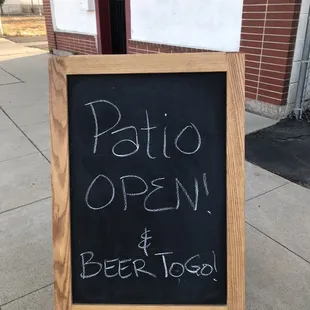 Patio
OPEN!
&
BEER TO GO!